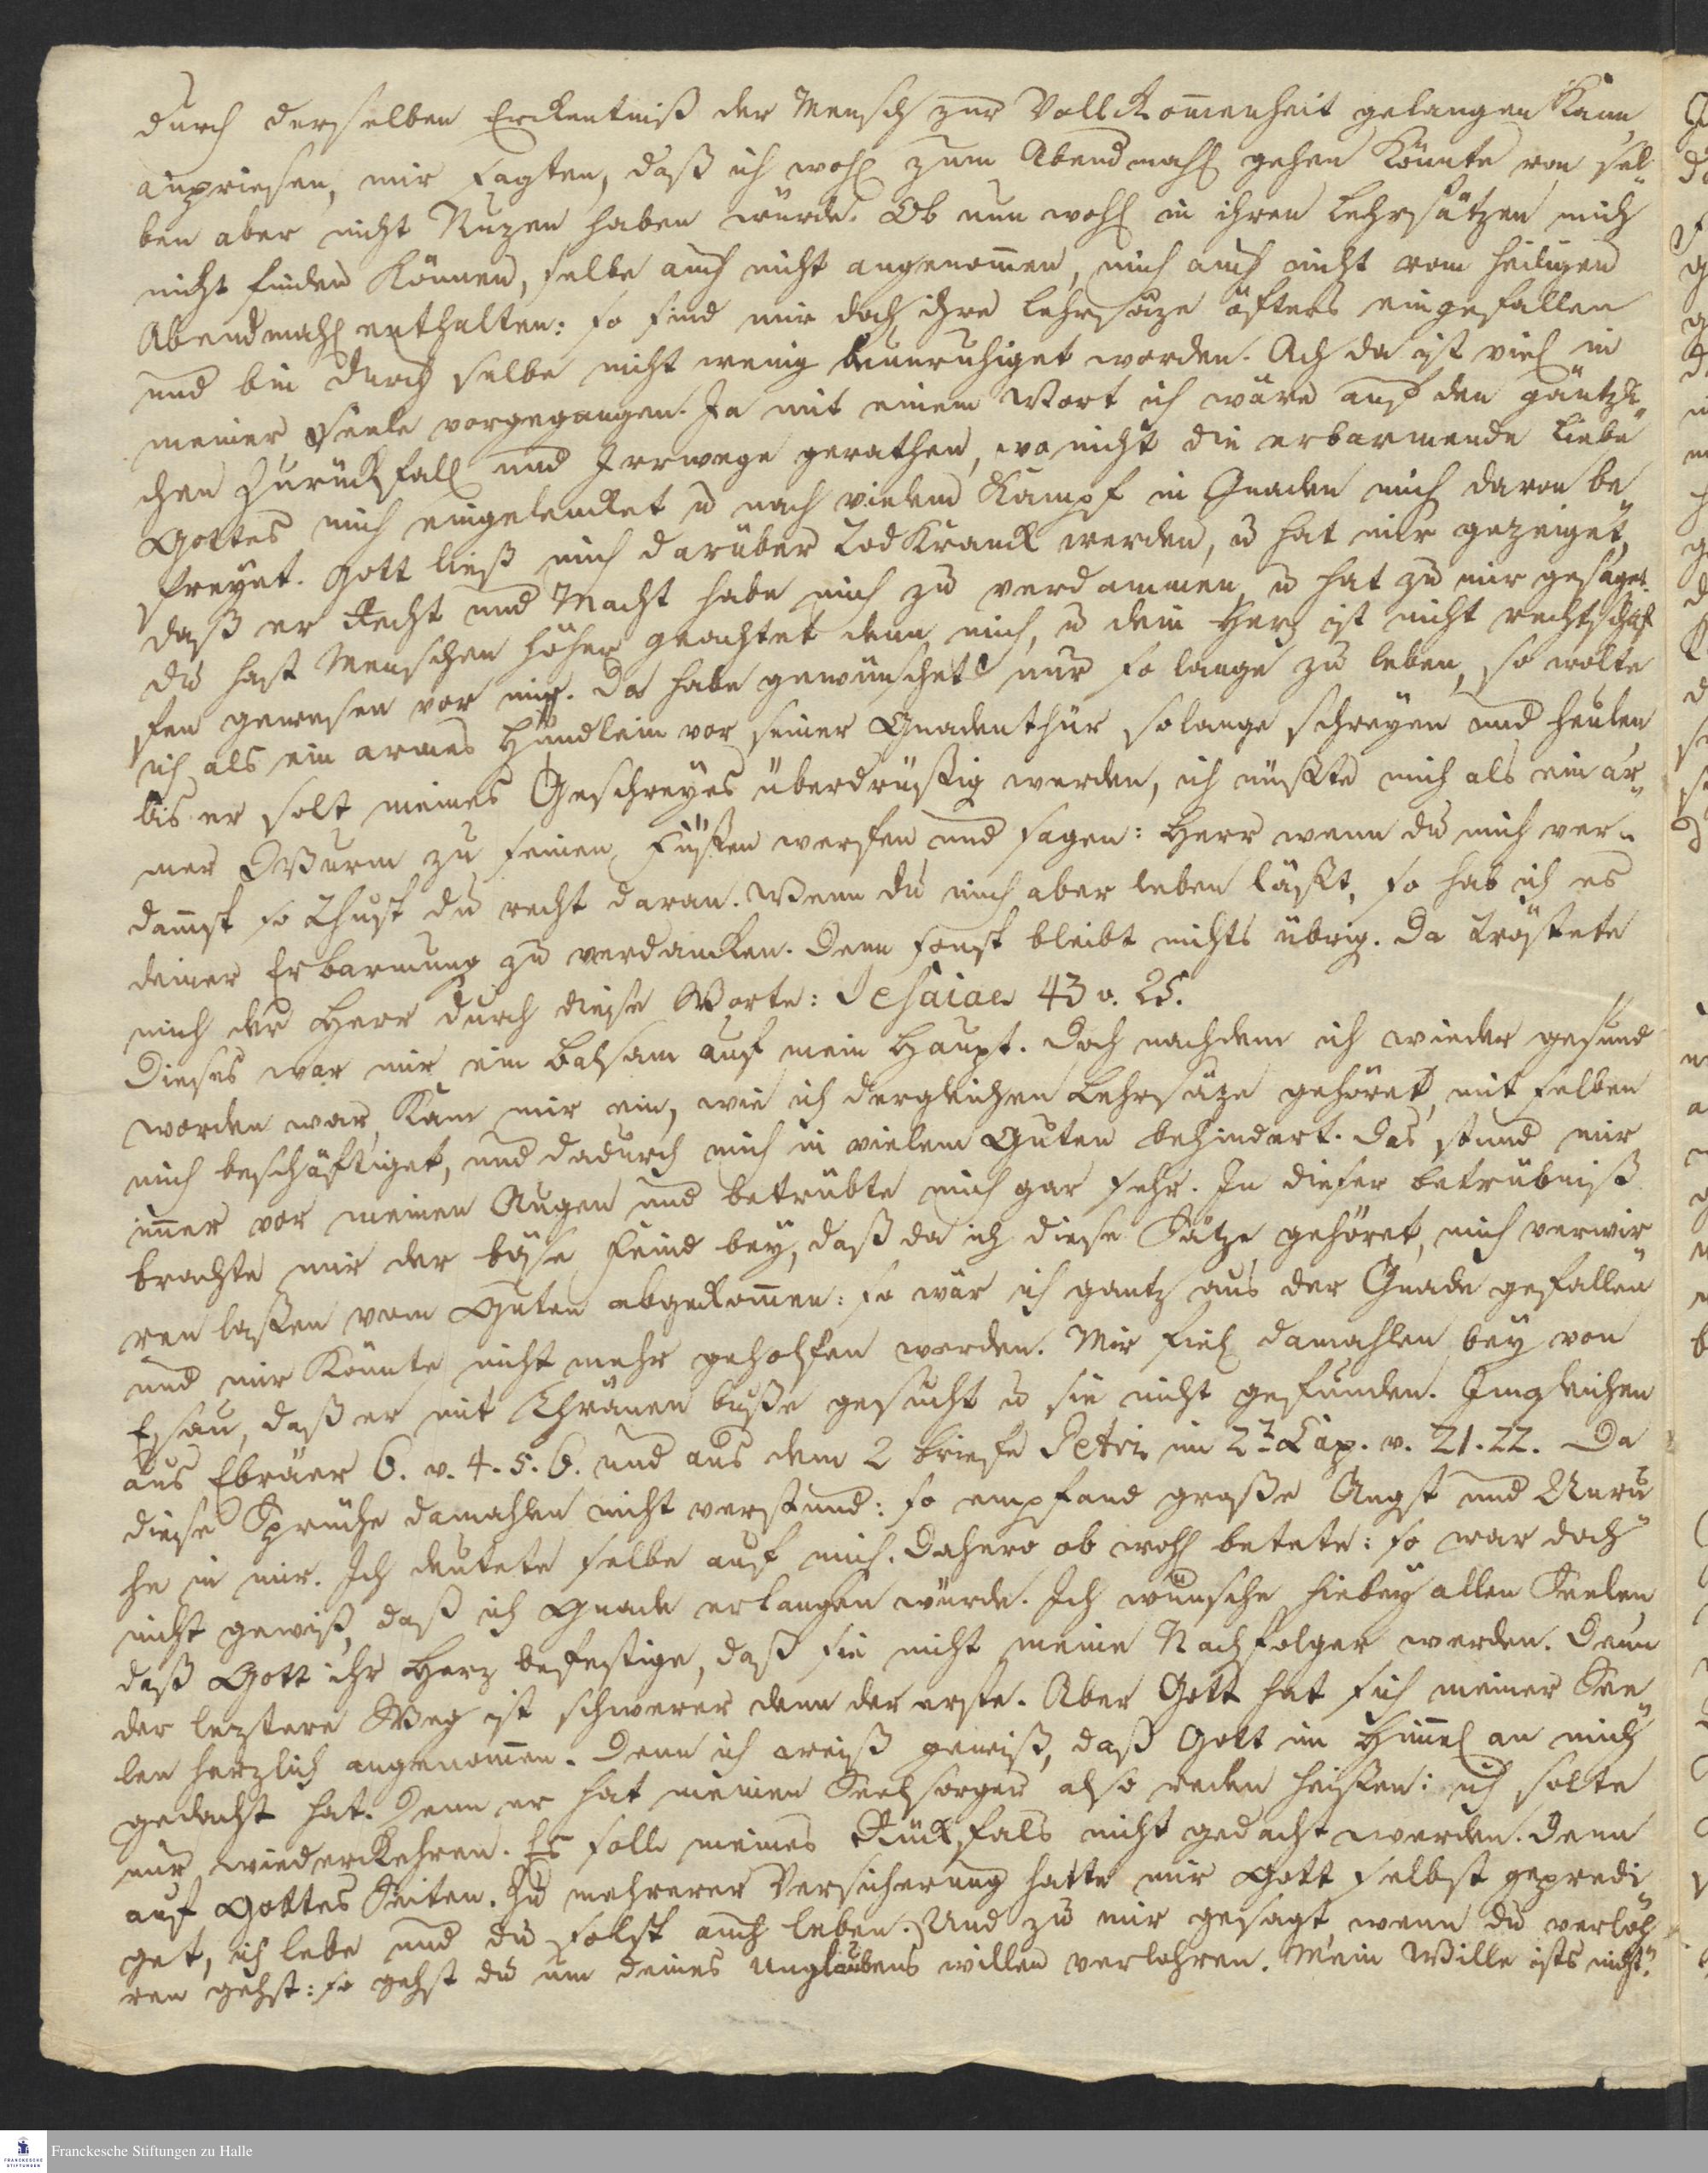 durch derselben Erckentniß der Mensch zur Vollckom̄enheit gelangen kann
anpriesen, mir sagten, daß ich wohl zum Abendmahl gehen könnte von sel„
ben aber nicht Nuzen haben würde. Ob nun wohl in ihren Lehrsätzen mich
nicht finden können, selbe auch nicht angenom̄en, mich auch nicht vom heiligen
Abendmahl enthalten: so sind mir doch ihre Lehrsäze öfters eingefallen
und bin durch selbe nicht wenig beunruhiget worden. Ach da ist viel in
meiner Seele vorgegangen. Ja mit einem Wort ich wäre auf den gäntzli„
chen Zurückfall und Irrwege gerathen, wo nicht die erbarmende Liebe
Gottes mich eingelencket u nach vielem Kampf in Gnaden mich davon be„
freyet. Gott ließ mich darüber Todkranck werden, u hat mir gezeiget,
daß er Recht und Macht habe mich zu verdammen, u hat zu mir gesaget.
du hast Menschen höher geachtet denn mich, u dein Herz ist nicht rechtschaf
fen gewesen vor mir. Da habe gewünschet nur so lange zu leben, so wolte
ich als ein armes Hündlein vor seiner Gnadenthür solange schreyen und heulen
bis er solt meines Geschreyes überdrüßig werden, ich müßte mich als ein ar„
mer Wurm zu seinen Füßen werfen und sagen: Herr wenn du mich ver„
dam̄st so Thust du recht daran. Wenn du mich aber leben läßt, so hab ich es
deiner Erbarmung zu verdancken. Denn sonst bleibt nichts übrig. Da tröstete
mich der Herr durch diese Worte: Jesaiae 43 v. 25.
Dieses war mir ein Balsam auf mein Haupt. Doch nachdem ich wieder gesund
worden war, kam mir ein, wie ich dergleichen Lehrsäze gehöret, mit selben
mich beschäftiget, und dadurch mich in vielem Guten behindert. Das stund mir
im̄er vor meinen Augen und betrübte mich gar sehr. In dieser Betrübniß
brachte mir der böse Feind bey, daß da ich diese Sätze gehöret, mich verwir„
ren laßen vom Guten abgekom̄en: so wär ich gantz aus der Gnade gefallen
und mir könnte nicht mehr geholfen werden. Mir fiel damahlen bey von
Esau, daß er mit Thränen Buße gesucht u sie nicht gefunden. Imgleichen
aus Ebräer 6. v. 4. 5. 6. und aus dem 2 Briefe Petri im 2t Cap. v. 21. 22. Da
diese Sprüche damahlen nicht verstund: so empfand große Angst und Unru„
he in mir. Ich deutete selbe auf mich. Dahero ob wohl betete: so war doch
nicht gewiß, daß ich Gnade erlangen würde. Ich wünsche hiebey allen Seelen
daß Gott ihr Herz befestige, daß sie nicht meine Nachfolger werden. Denn
der leztere Weg ist schwerer denn der erste. Aber Gott hat sich meiner See„
len herzlich angenom̄en. Denn ich weiß gewiß, daß Gott im Him̄el an mich
gedacht hat. Denn er hat meinen Seelsorger also reden heißen: ich solte
nur wiederckehren. Es solle meines Rückfals nicht gedacht werden. Denn
auf Gottes Seiten. Zu mehrerer Versicherung hatte mir Gott selbst gepredi„
get, ich lebe und du solst auch leben. Und zu mir gesagt, wenn du verloh„
ren gehst: so gehst du um deines Unglaubens willen verlohren. Mein Wille ists nicht.
Franckesche Stiftungen zu Halle